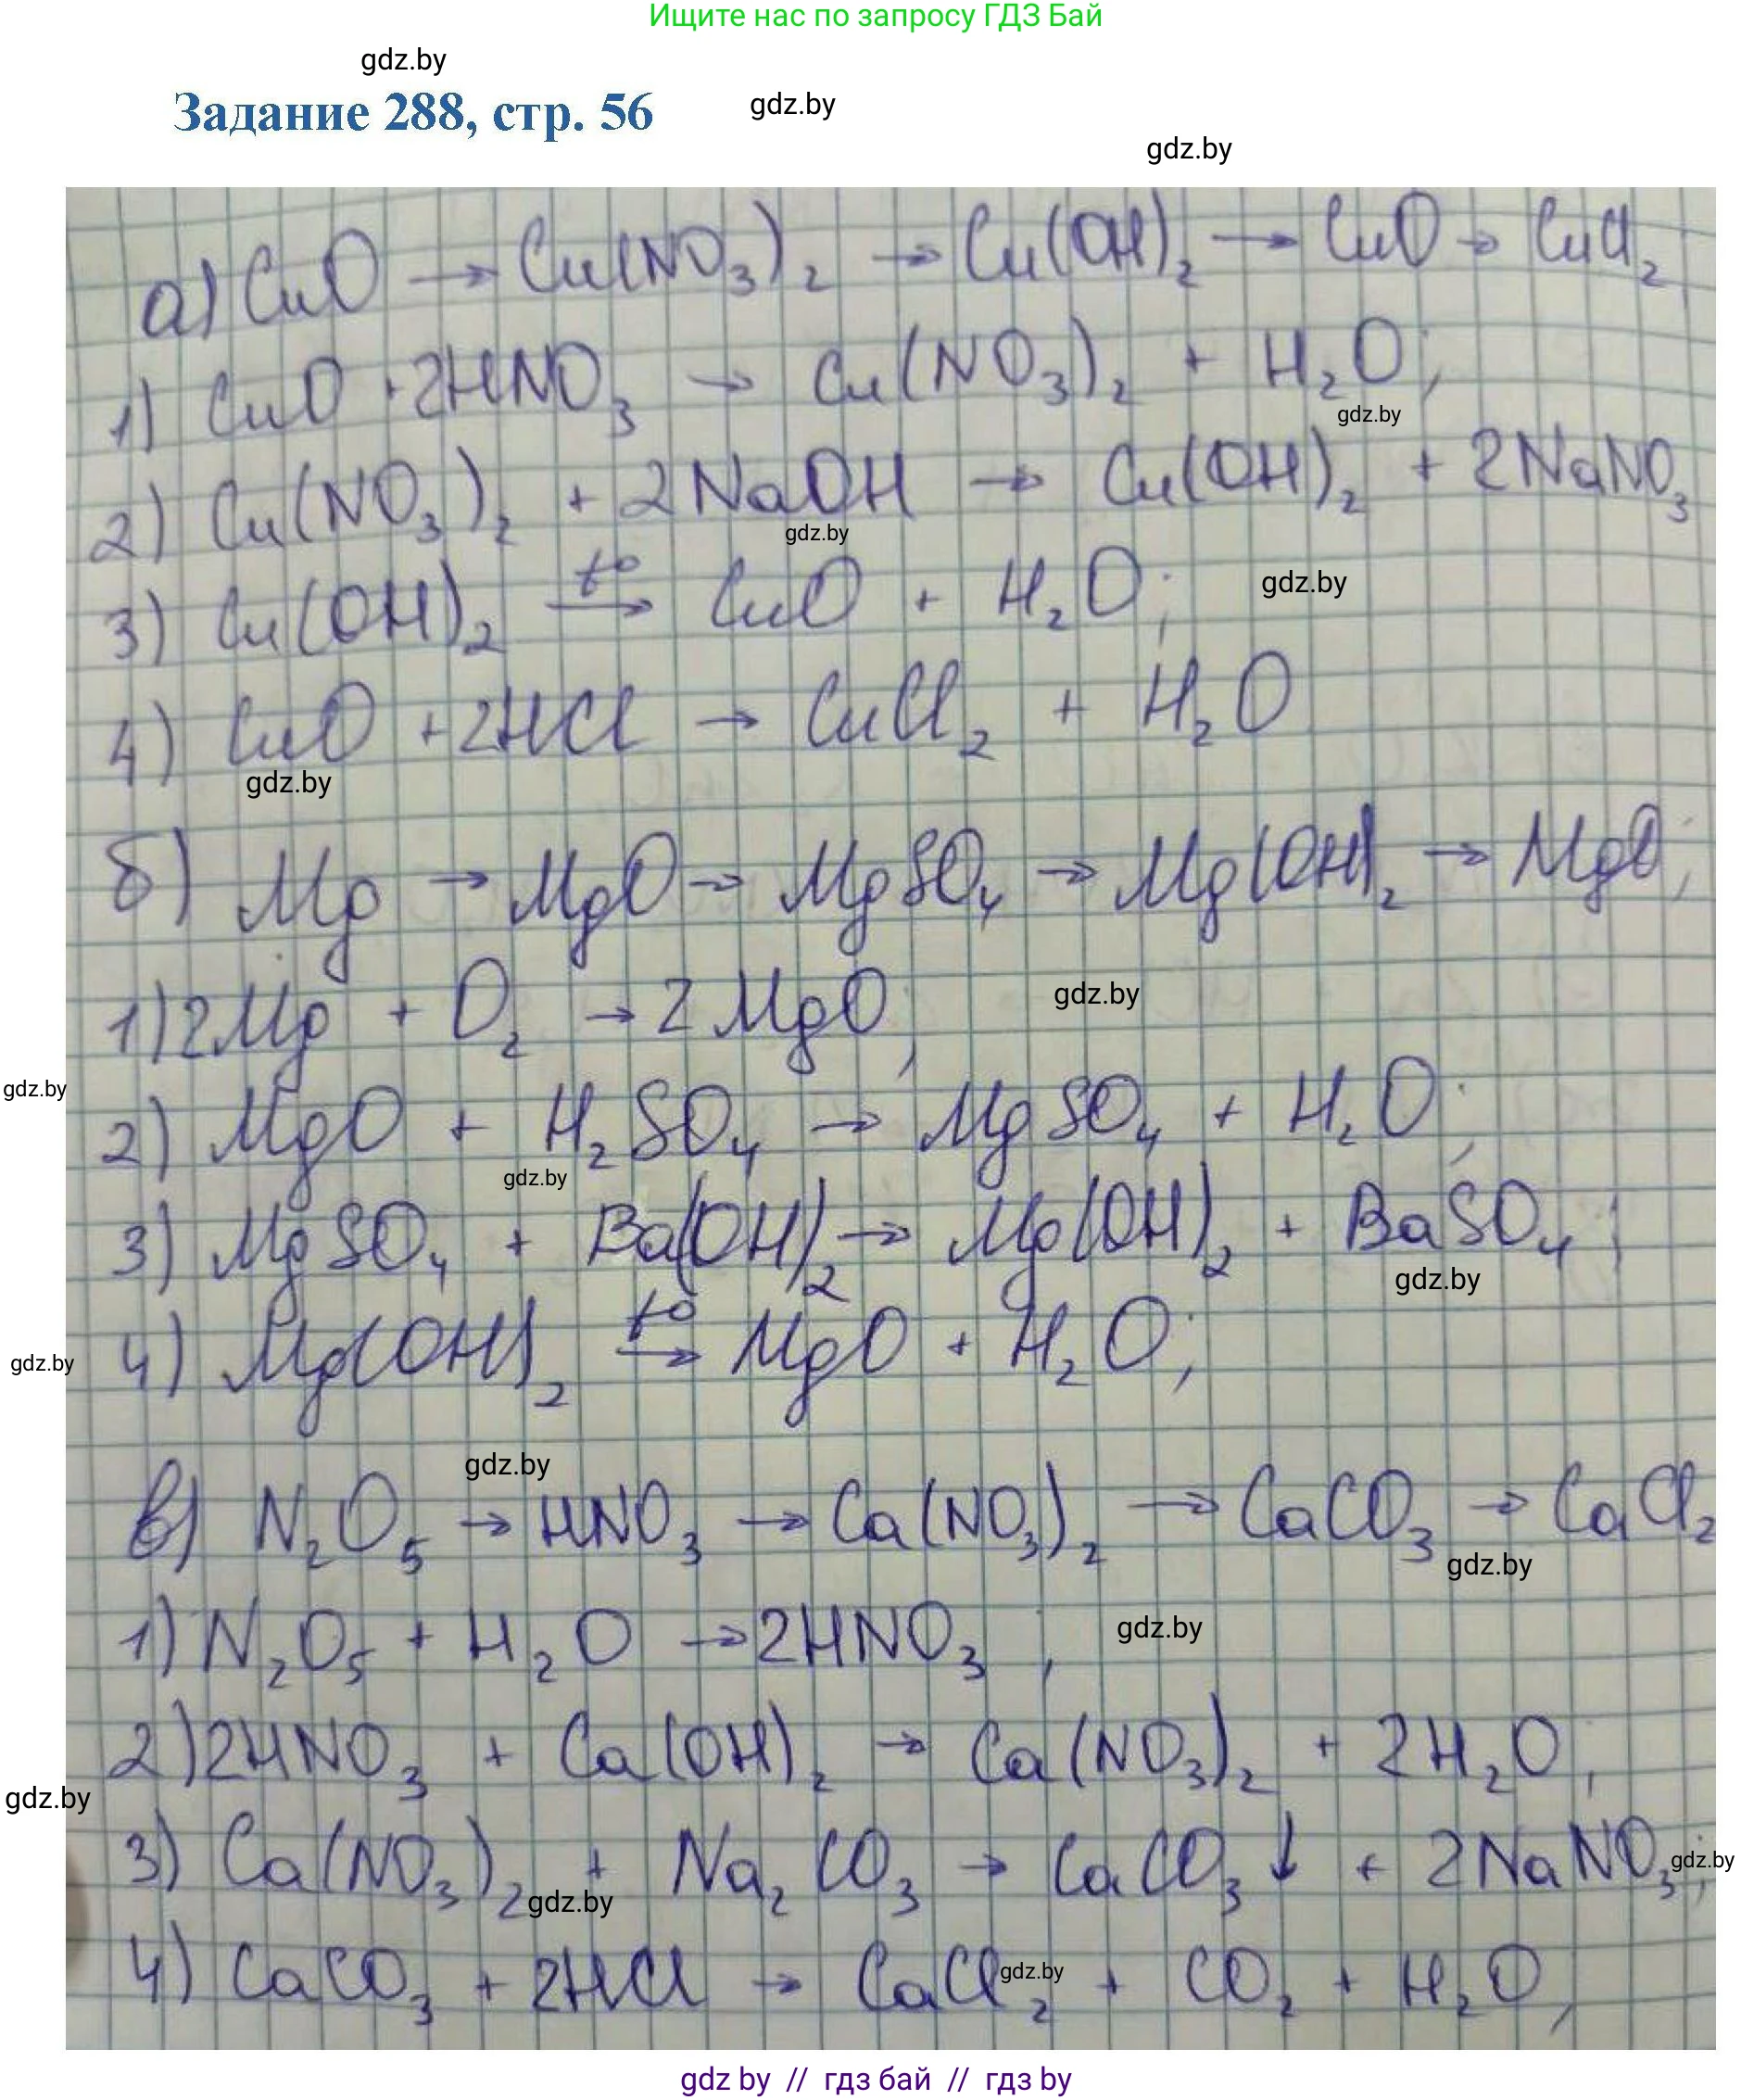 Ищите нас по запросу ГДЗ Бай
gdz.by
Задание 288, стр. 56
gdz.by
gdz.by
а) CuO → Cu(NO₃)₂ → Cu(OH)₂ → CuO → CuCl₂
1) CuO + 2HNO₃ → Cu(NO₃)₂ + H₂O;
gdz.by
2) Cu(NO₃)₂ + 2NaOH → Cu(OH)₂ + 2NaNO₃
gdz.by
3) Cu(OH)₂ →(t°) CuO + H₂O;
gdz.by
4) CuO + 2HCl → CuCl₂ + H₂O
gdz.by
б) Mg → MgO → MgSO₄ → Mg(OH)₂ → MgO;
1) 2Mg + O₂ → 2MgO;
gdz.by
gdz.by
2) MgO + H₂SO₄ → MgSO₄ + H₂O;
gdz.by
3) MgSO₄ + Ba(OH)₂ → Mg(OH)₂ + BaSO₄;
gdz.by
4) Mg(OH)₂ →(t°) MgO + H₂O;
gdz.by
gdz.by
в) N₂O₅ → HNO₃ → Ca(NO₃)₂ → CaCO₃ → CaCl₂
gdz.by
1) N₂O₅ + H₂O → 2HNO₃;
gdz.by
2) 2HNO₃ + Ca(OH)₂ → Ca(NO₃)₂ + 2H₂O;
gdz.by
3) Ca(NO₃)₂ + Na₂CO₃ → CaCO₃↓ + 2NaNO₃;
gdz.by
gdz.by
4) CaCO₃ + 2HCl → CaCl₂ + CO₂ + H₂O,
gdz.by
gdz by // гдз бай // gdz by